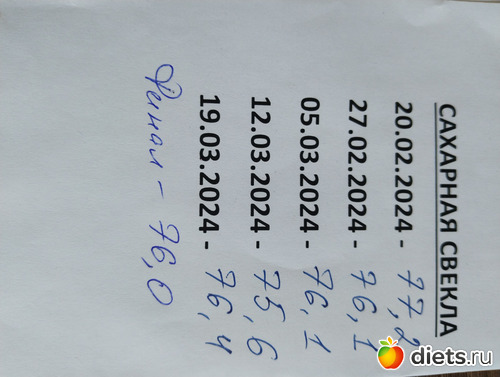 САХАРНАЯ СВЕКЛА
20.02.2024 - 77,2
27.02.2024 - 76,1
05.03.2024 - 76,1
12.03.2024 - 75,6
19.03.2024 - 76,4
Финал - 76,0
diets.ru